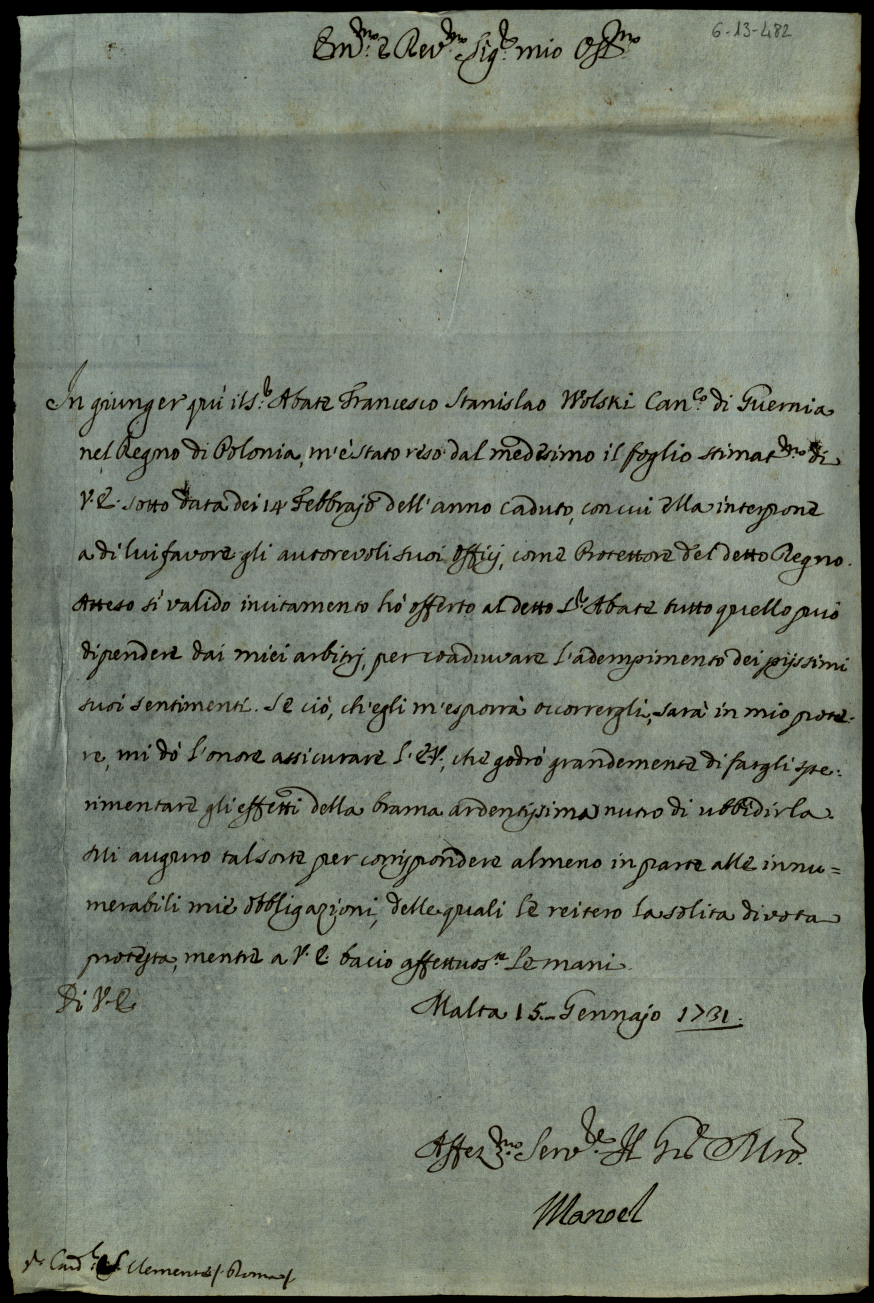 6-13-482
Em.mo e Rev.mo Sig.r mio Oss.mo
In giunger quì il S.r Abate Francesco Stanislao Wolski Can.co di Guernia
nel Regno di Polonia, m'è stato reso dal medesimo il foglio stimat.mo di
V.E. sotto data dei 14 Febbrajo dell'anno caduto, con cui ella interpone
a di lui favore gli autorevoli suoi offizj, come Protettore del detto Regno.
Atteso sì valido incitamento hò offerto al detto S.r Abate tutto quello può
dipendere dai miei arbitrj, per coadiuvare l'adempimento dei pijssimi
suoi sentimenti. Se ciò, ch'egli m'esporrà occorrergli, sarà in mio pote-
re, mi dò l'onore assicurare l'E.V., che godrò grandemente di fargli spe:
rimentare gli effetti della brama ardentissima nutro di ubbidirla.
Mi auguro tal sorte per corrispondere almeno in parte alle innu=
merabili mie obbligazioni, delle quali le reitero la solita divota
protesta, mentre a V.E. bacio affettuos.te le mani.
Di V.E.
Malta 15 Gennajo 1731.
Affez.mo Serv.re Il Gr. M.ro
Manoel
Card.l S. Clemente /. Roma /